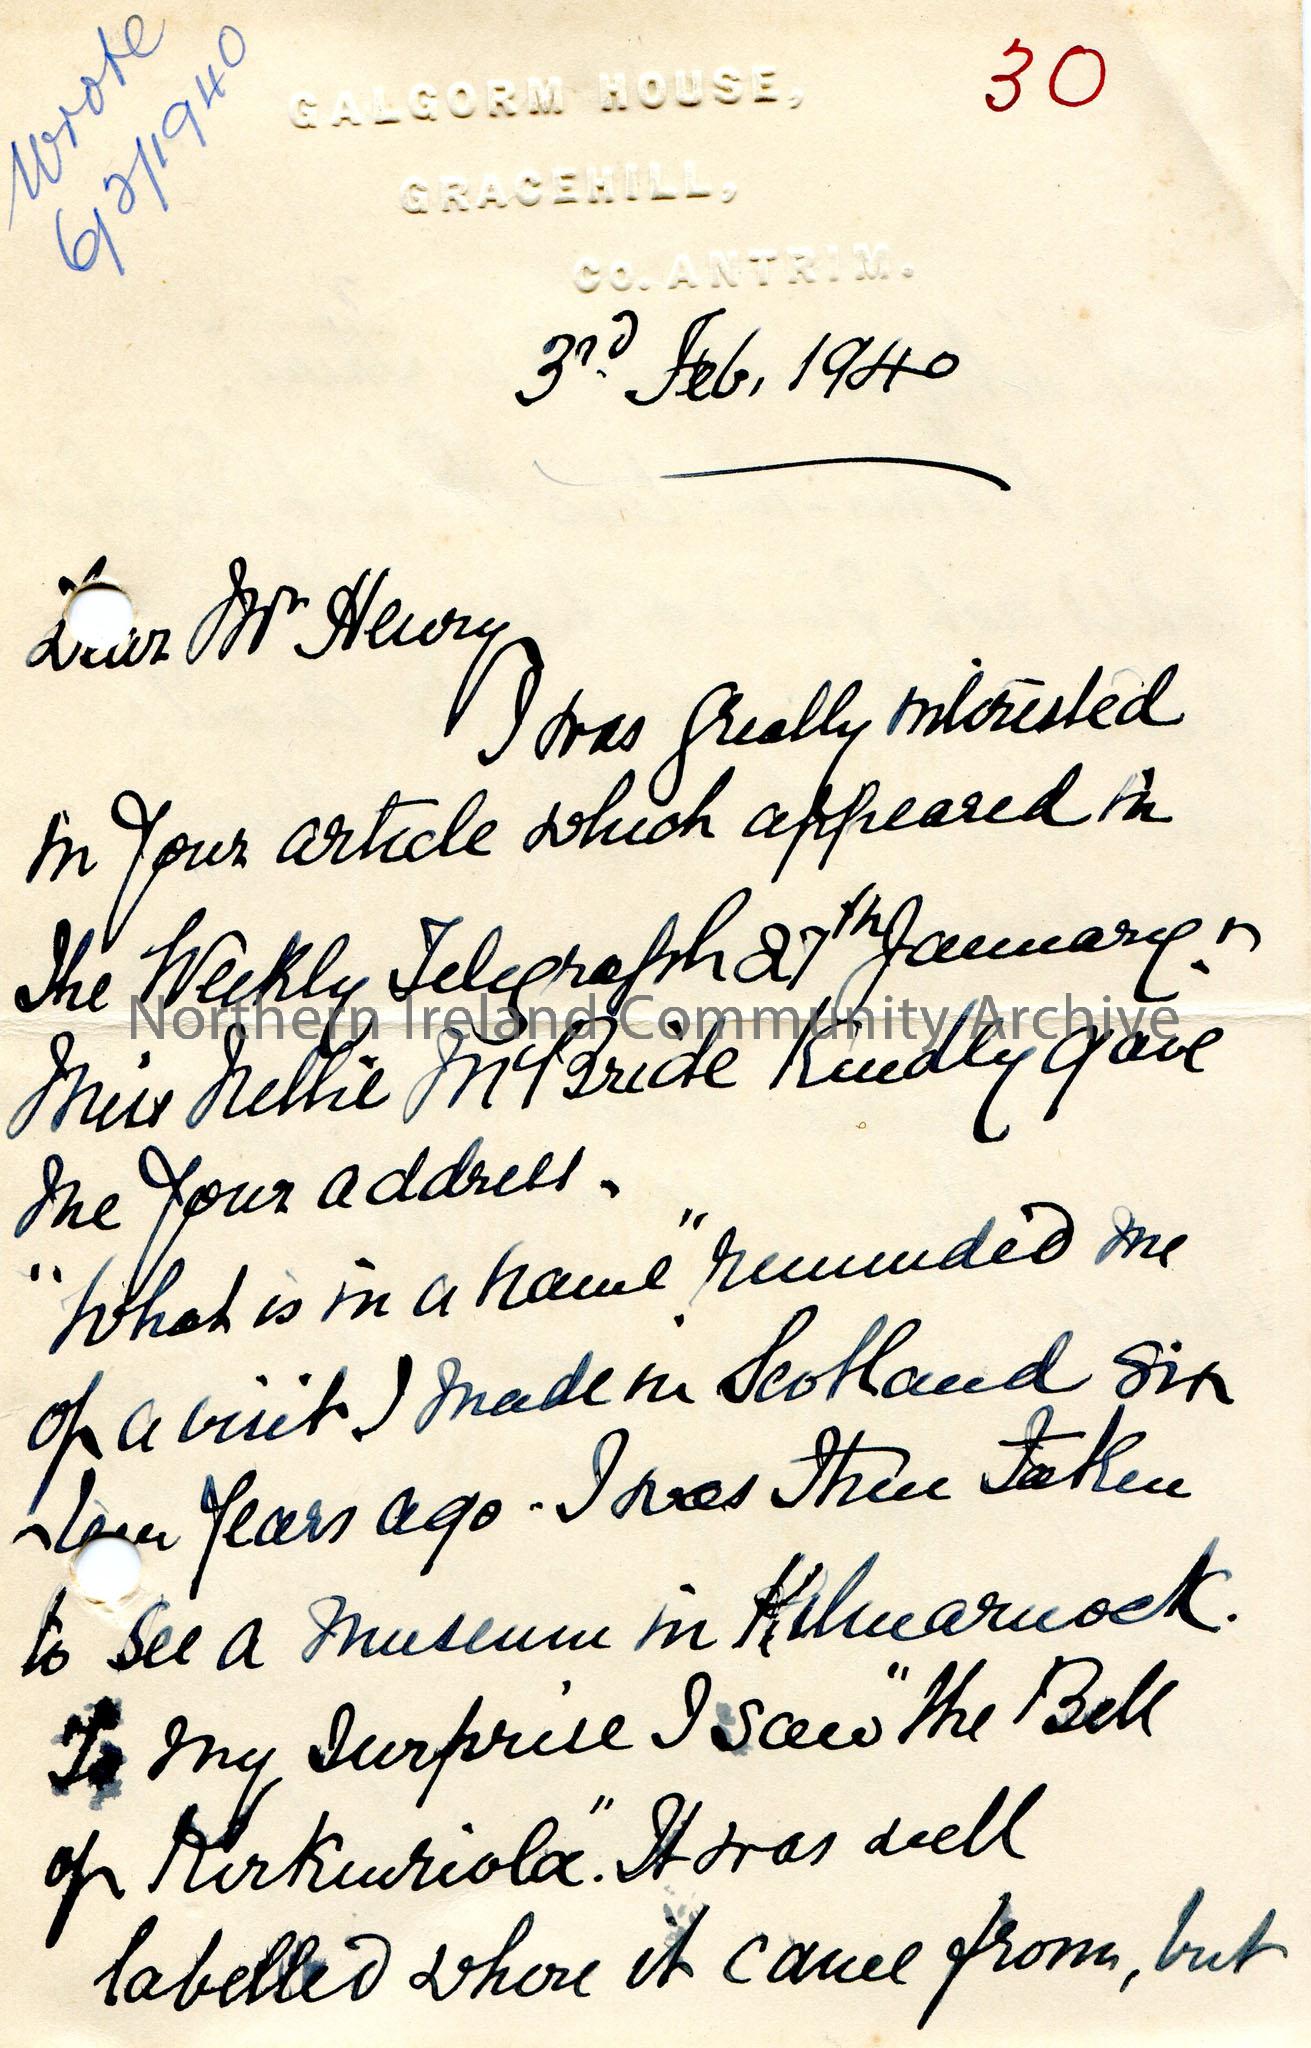 Wrote
6/2/1940
30
GALGORM HOUSE,
GRACEHILL,
CO. ANTRIM.
3rd Feb, 1940
Dear Mr Henry
I was greatly interested
in your article which appeared in
the Weekly Telegraph 27th January.
Miss Nellie McBride kindly gave
me your address.
"What is in a name" reminded me
of a visit I made in Scotland six
years ago. I was then taken
to see a museum in Kilmarnock.
To my surprise I saw "the Bell
of Kirkinriola". It was well
labelled where it came from, but
Northern Ireland Community Archive